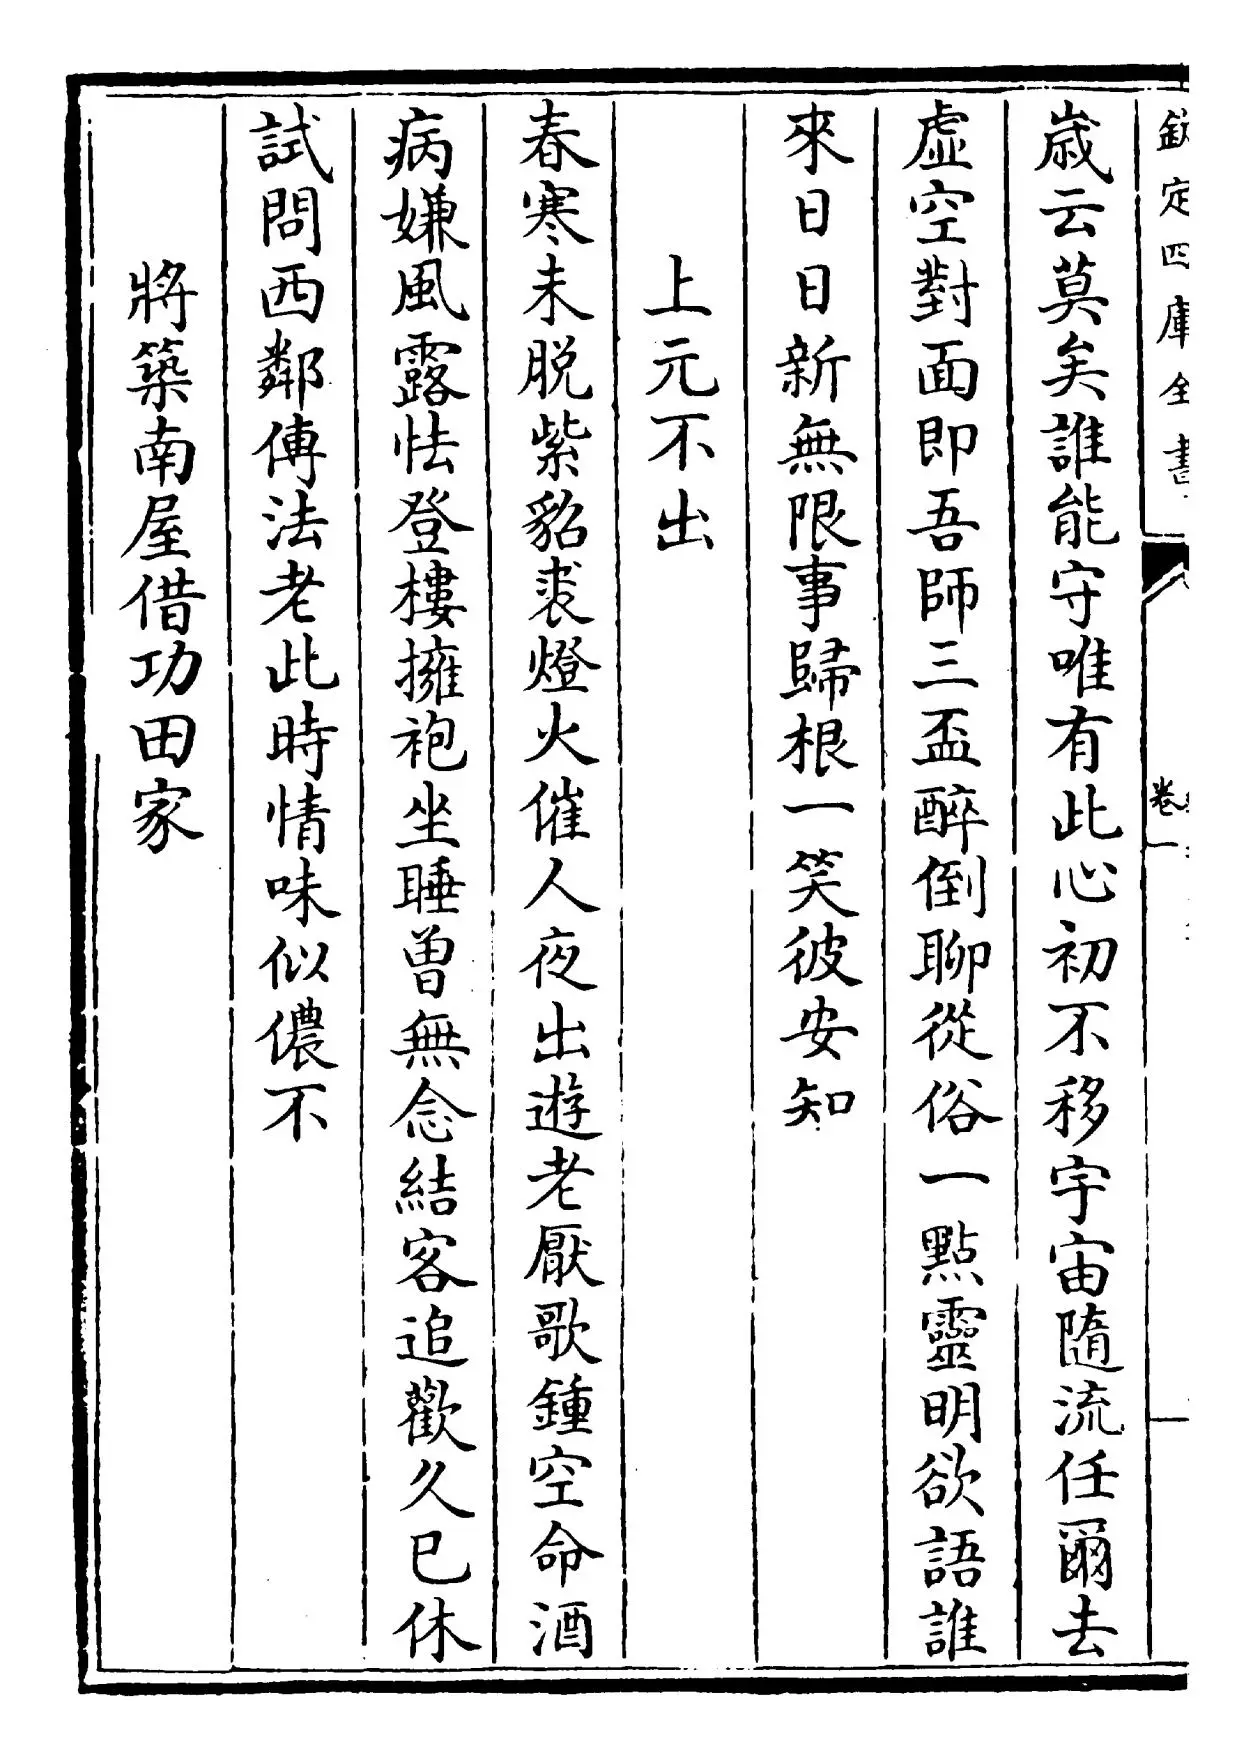 欽定四庫全書
卷一
歲云莫矣誰能守唯有此心初不移宇宙隨流任爾去
虛空對面即吾師三盃醉倒聊從俗一點靈明欲語誰
來日日新無限事歸根一笑彼安知
上元不出
春寒未脫紫貂裘燈火催人夜出遊老厭歌鍾空命酒
病嫌風露怯登樓擁袍坐睡曾無念結客追歡久已休
試問西鄰傳法老此時情味似儂不
將築南屋借功田家